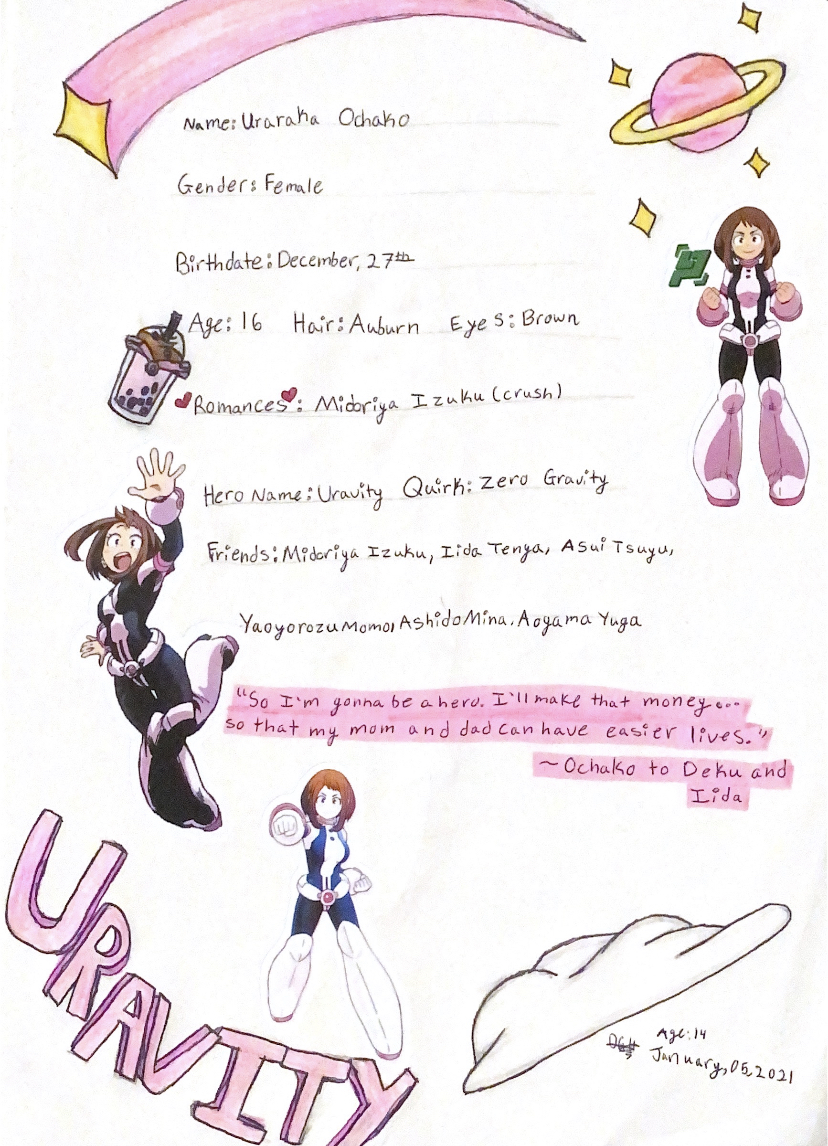 Name: Uraraka Ochako
Gender: Female
Birthdate: December, 27th
Age: 16 Hair: Auburn Eyes: Brown
Romances: Midoriya Izuku (crush)
Hero Name: Uravity Quirk: Zero Gravity
Friends: Midoriya Izuku, Iida Tenya, Asui Tsuyu,
Yaoyorozu Momo, Ashido Mina, Aoyama Yuga
"So I'm gonna be a hero. I'll make that money...
so that my mom and dad can have easier lives."
~ Ochako to Deku and
Iida
URAVITY
Age: 14
January, 05, 2021